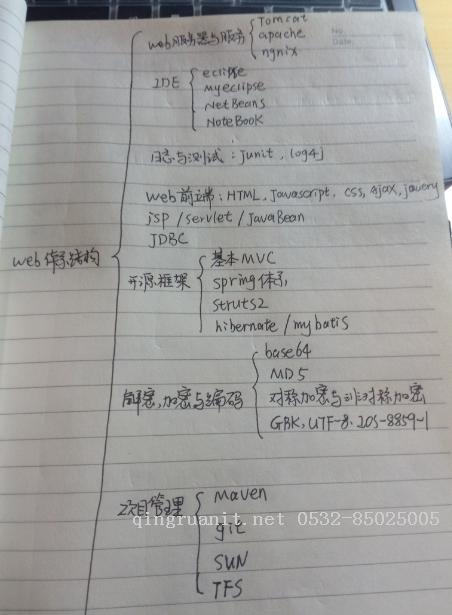 No.
Date.
web服务器与服务
Tomcat
apache
ngnix
IDE
eclipse
myeclipse
NetBeans
NoteBook
日志与测试：junit、log4j
web前端：HTML、Javascript、css、ajax、jquery
jsp / servlet / javaBean
JDBC
web体系结构
开源框架
基本MVC
spring体系
struts2
hibernate / mybatis
解密、加密与编码
base64
MD5
对称加密与非对称加密
GBK、UTF-8、IOS-8859-1
项目管理
maven
git
SUN
TFS
qingruanit.net 0532-85025005